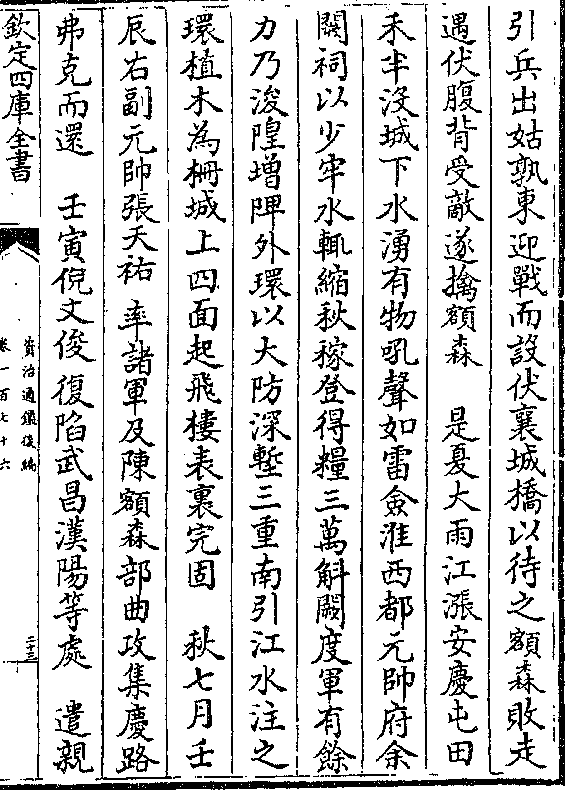 引兵出姑孰東迎戰而設伏襄城橋以待之額森敗走
遇伏腹背受敵遂擒額森　是夏大雨江漲安慶屯田
禾半沒城下水湧有物吼聲如雷僉淮西都元帥府余
闕祠以少牢水輒縮秋稼登得糧三萬斛闕度軍有餘
力乃浚隍增陴外環以大防深塹三重南引江水注之
環植木為柵城上四面起飛樓表裏完固　秋七月壬
辰右副元帥張天祐率諸軍及陳額森部曲攻集慶路
弗克而還　壬寅倪文俊復陷武昌漢陽等處　遣親
欽定四庫全書
資治通鑑後編
卷一百七十六
二十三